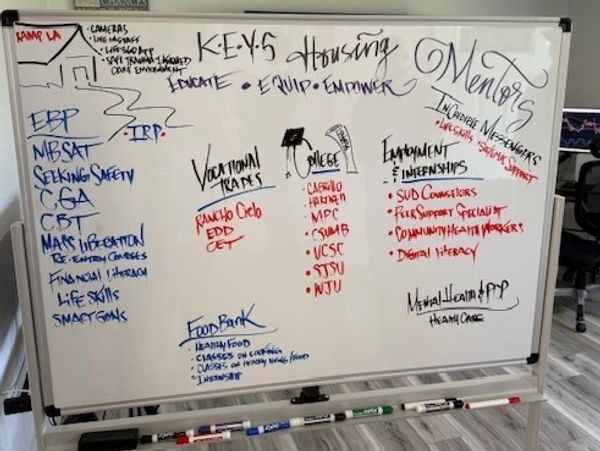 CHANCES
RAMP LA
• CAMERAS
• LIVE IN STAFF
• LIFE360 APP
• SAFE TRAUMA INFORMED
CARE ENVIRONMENT
K·E·Y·S Housing
EDUCATE • EQUIP • EMPOWER
Mentors
INCREDIBLE MESSENGERS
• LIFESKILLS
SUPPORT
EBP
• IRP •
MBSAT
SEEKING SAFETY
CGA
CBT
MASS LIBERATION
RE-ENTRY COURSES
FINANCIAL LITERACY
LIFE SKILLS
SMART GOALS
VOCATIONAL
TRADES
RANCHO CIELO
EDD
CET
COLLEGE
• CABRILLO
• HARTNELL
• MPC
• CSUMB
• UCSC
• SJSU
EMPLOYMENT
& INTERNSHIPS
• SUD COUNSELORS
• PEER SUPPORT SPECIALIST
• COMMUNITY HEALTH WORKERS
• DIGITAL LITERACY
FOOD BANK
• HEALTHY FOOD
• CLASSES ON COOKING
• CLASSES ON HEALTHY LIVING/FOOD
• INTERNSHIP
MENTAL HEALTH & PCP
HEALTH CARE